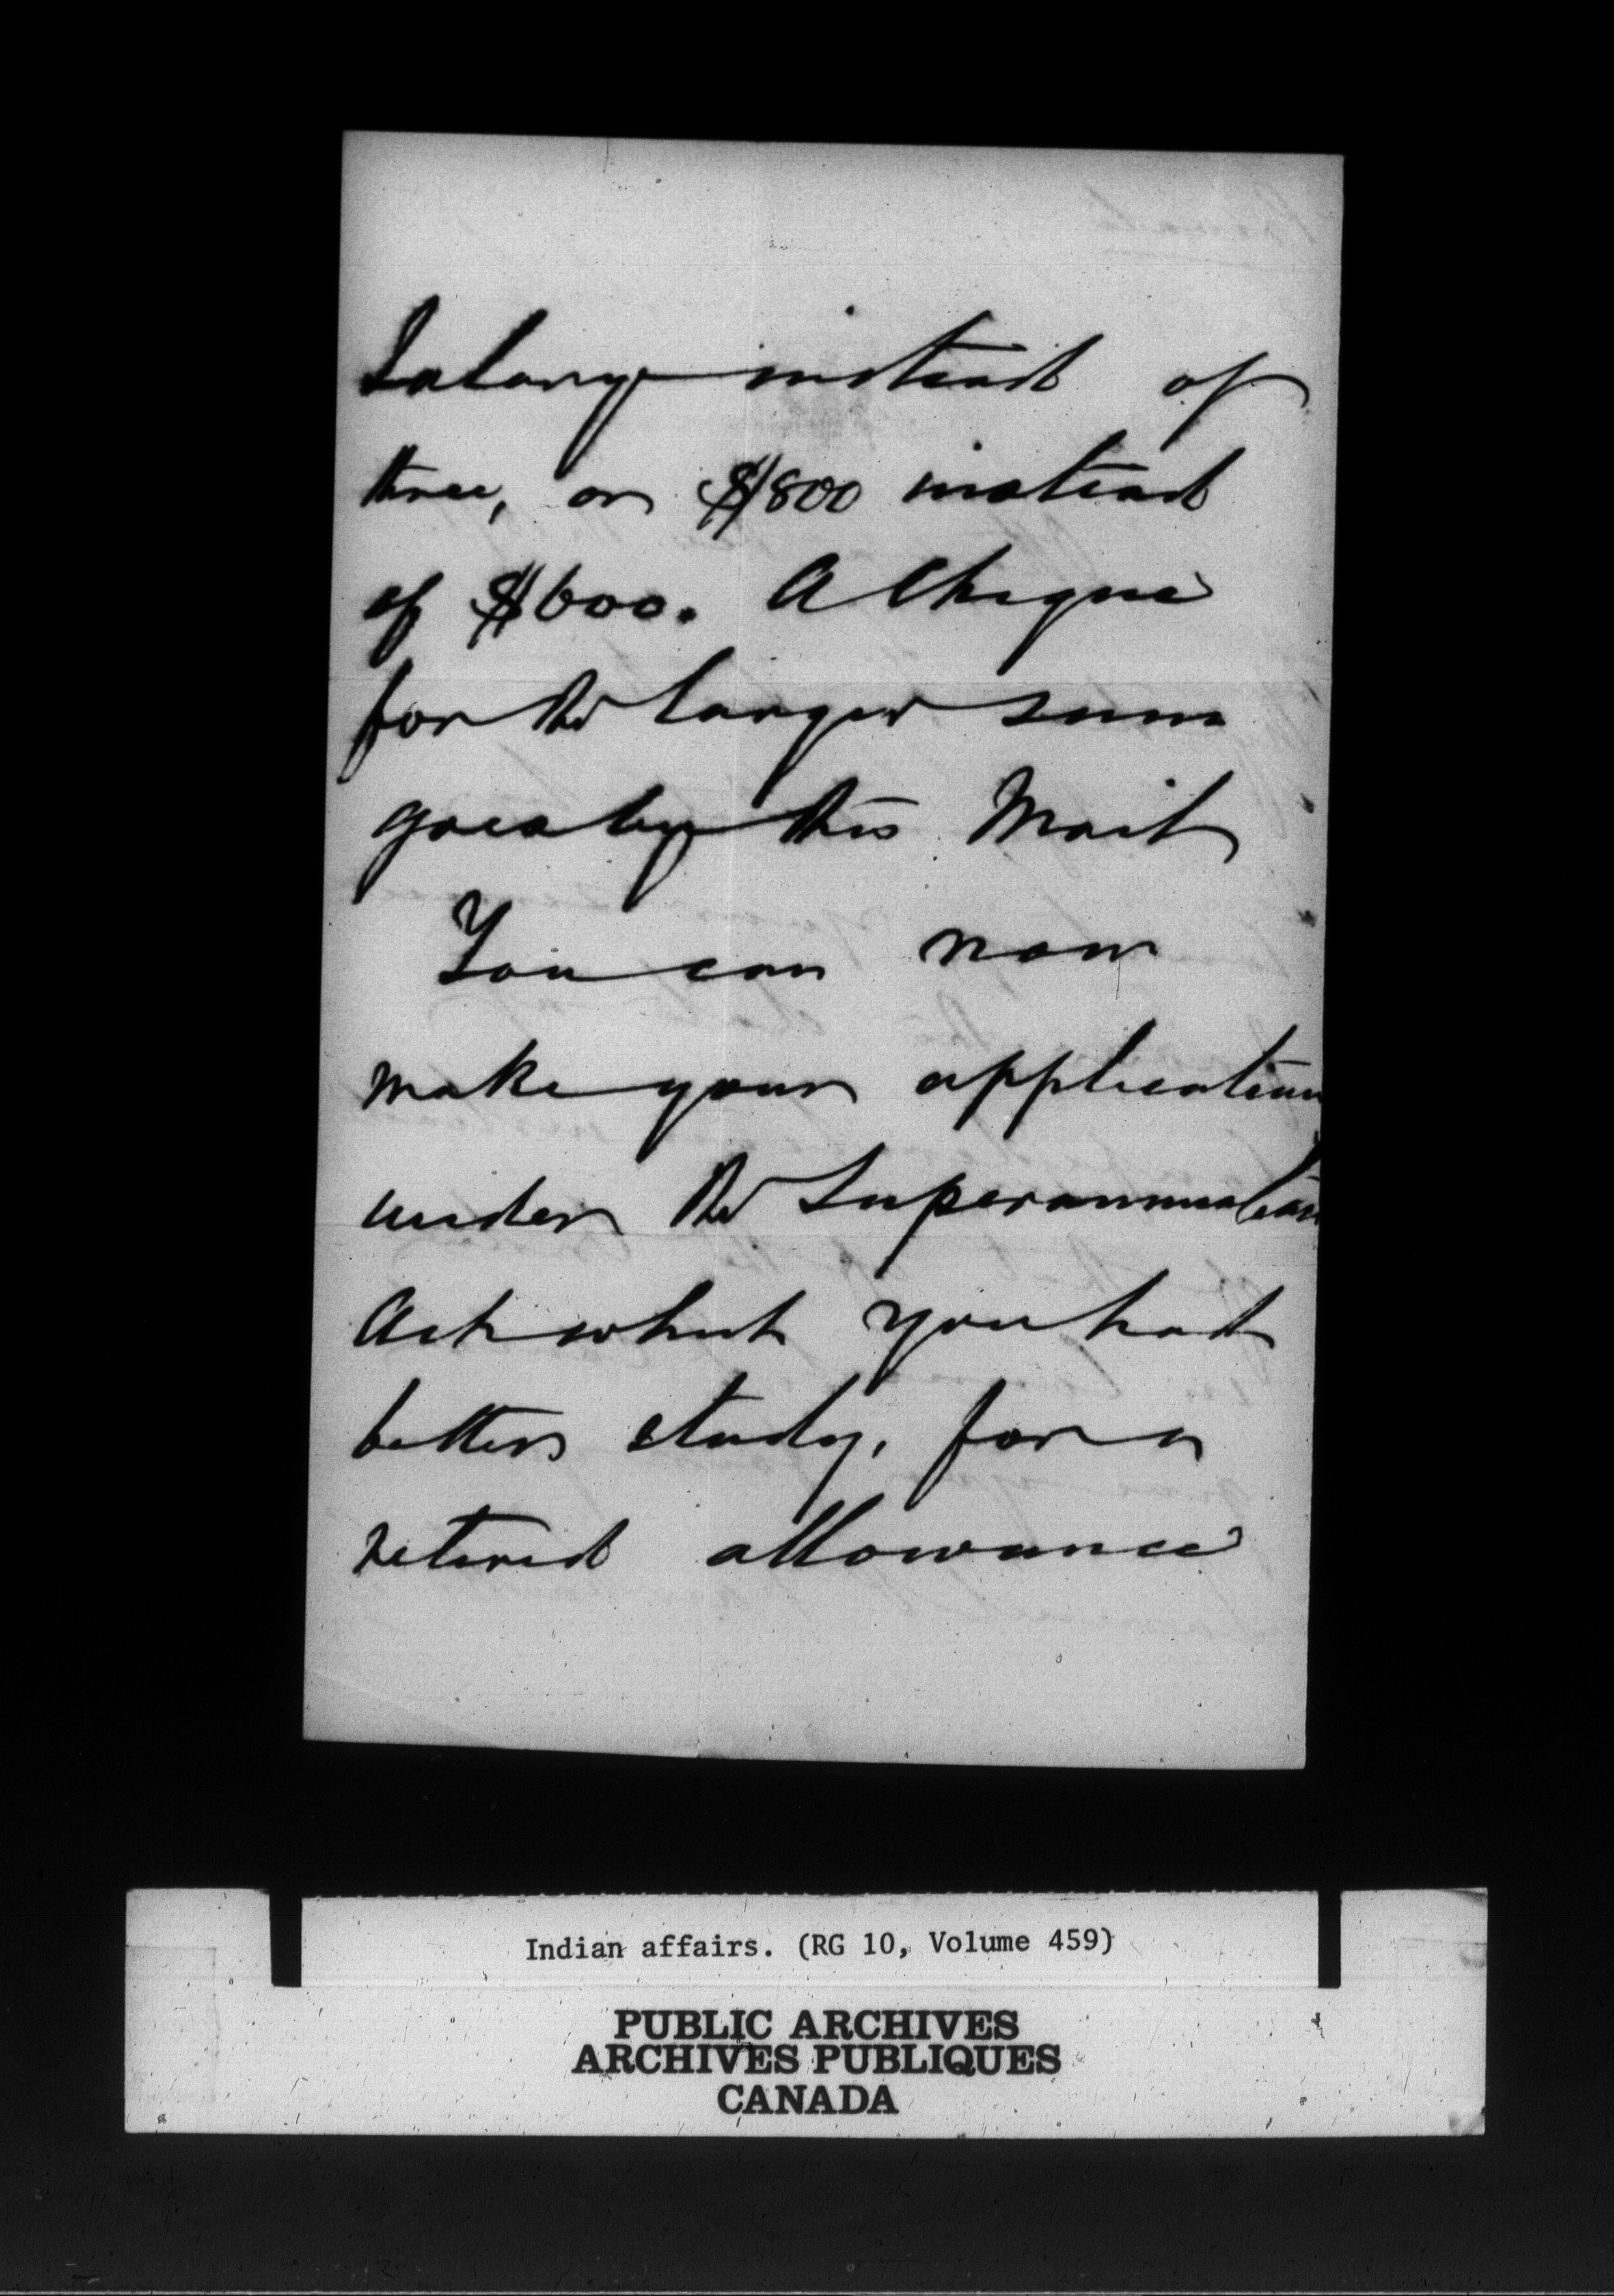 Salary instead of
three, or $800 instead
of $600. A Cheque
for the larger sum
goes by this Mail
You can now
make your application
under the Superannuation
Act which you had
better study, for a
retired allowance
Indian affairs. (RG 10, Volume 459)
PUBLIC ARCHIVES
ARCHIVES PUBLIQUES
CANADA